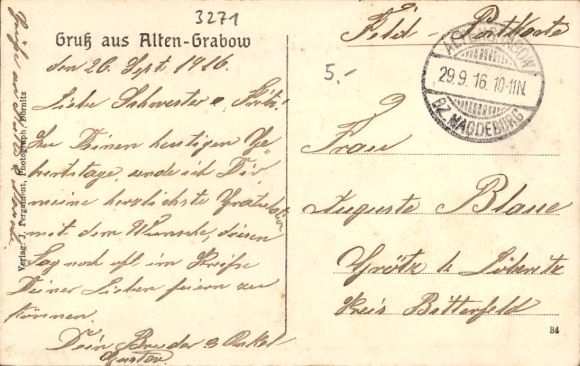 3271
Feld-Postkarte
Gruß aus Alten-Grabow
den 26. Sept. 1916.
5,-
ALTENGRABOW
29.9.16. 10-11N.
BZ. MAGDEBURG
Liebe Schwester
Zu Deinem heutigen Ge-
burtstage, sende ich Dir
meine herzlichste Gratulation
mit dem Wunsche, diesen
Tag noch oft im Kreise
Deiner Lieben feiern zu
können.
Dein Bruder & Onkel
Gustav.
Frau
Auguste Blaue
b. Löbnitz
Kreis Bitterfeld
34
Verlag: J. Pergamont, Photograph, Dörnitz